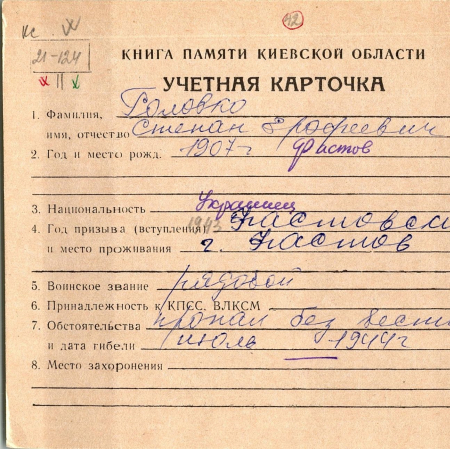 42
21-124
КНИГА ПАМЯТИ КИЕВСКОЙ ОБЛАСТИ
УЧЕТНАЯ КАРТОЧКА
1. Фамилия, Головко
имя, отчество Степан Ерофеевич
2. Год и место рожд. 1907 г Фастов
3. Национальность Украинец
4. Год призыва (вступления) 1943 Фастовски
и место проживания г. Фастов
5. Воинское звание рядовой
6. Принадлежность к КПСС, ВЛКСМ
7. Обстоятельства пропал без вести
и дата гибели июль 1944г
8. Место захоронения